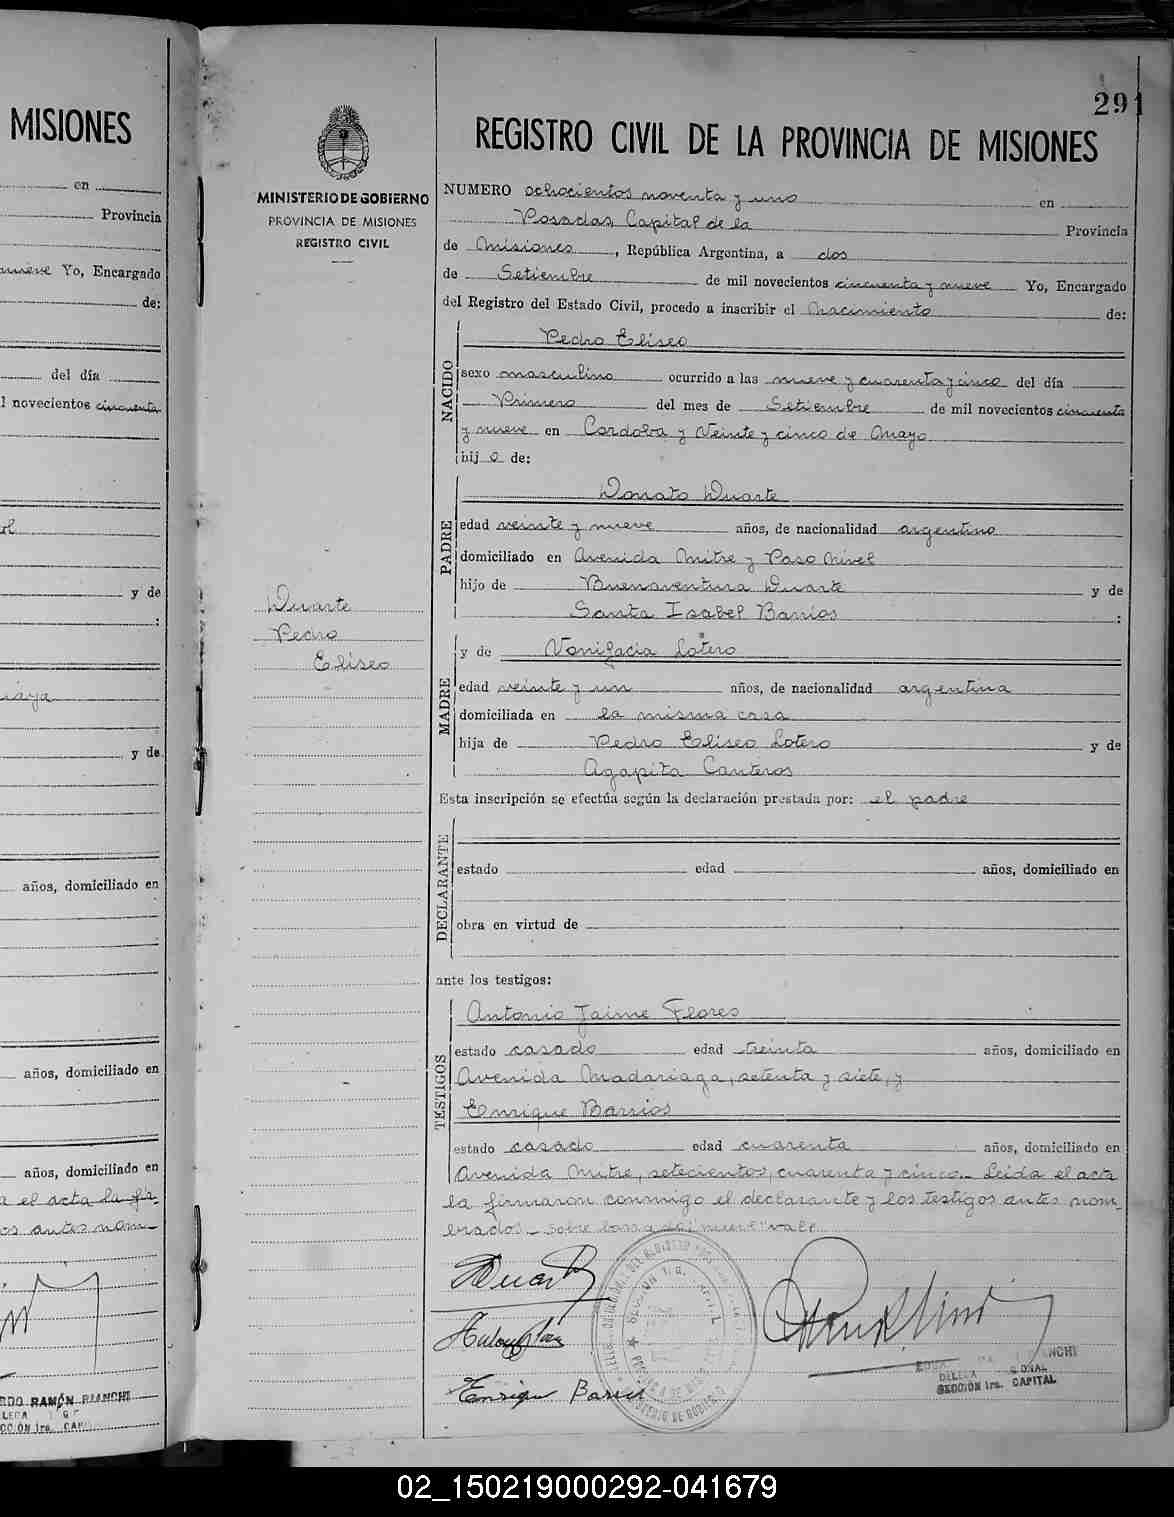 MISIONES
en
Provincia
nueve Yo, Encargado
de:
del día
l novecientos cincuenta
y de
:
y de
años, domiciliado en
años, domiciliado en
años, domiciliado en
el acta la fir-
os antes nom-
RAMÓN BIANCHI
291
REGISTRO CIVIL DE LA PROVINCIA DE MISIONES
MINISTERIO DE GOBIERNO
PROVINCIA DE MISIONES
REGISTRO CIVIL
Duarte
Pedro
Eliseo
NUMERO ochocientos noventa y uno en
Posadas, Capital de la Provincia
de Misiones, República Argentina, a dos
de Setiembre de mil novecientos cincuenta y nueve Yo, Encargado
del Registro del Estado Civil, procedo a inscribir el Nacimiento de:
NACIDO
Pedro Eliseo
sexo masculino ocurrido a las nueve y cuarenta y cinco del día
Primero del mes de Setiembre de mil novecientos cincuenta
y nueve en Cordoba y Veinte y cinco de Mayo
hij o de:
PADRE
Donato Duarte
edad veinte y nueve años, de nacionalidad argentino
domiciliado en Avenida Mitre y Paso Nivel
hijo de Buenaventura Duarte y de
Santa Isabel Barrios :
MADRE
y de Vonifacia Lotero
edad veinte y un años, de nacionalidad argentina
domiciliada en la misma casa
hija de Pedro Eliseo Lotero y de
Agapita Canteros
Esta inscripción se efectúa según la declaración prestada por: el padre
DECLARANTE
estado edad años, domiciliado en
obra en virtud de
ante los testigos:
TESTIGOS
Antonio Jaime Flores
estado casado edad treinta años, domiciliado en
Avenida Madariaga, setenta y siete, y
Enrique Barrios
estado casado edad cuarenta años, domiciliado en
Avenida Mitre, setecientos, cuarenta y cinco.- Leida el acta
la firmaron conmigo el declarante y los testigos antes nom-
brados.- sobre vale.
DDuarte
Enrique Barrios
BIANCHI
SECCIÓN 1ra. CAPITAL
02_150219000292-041679